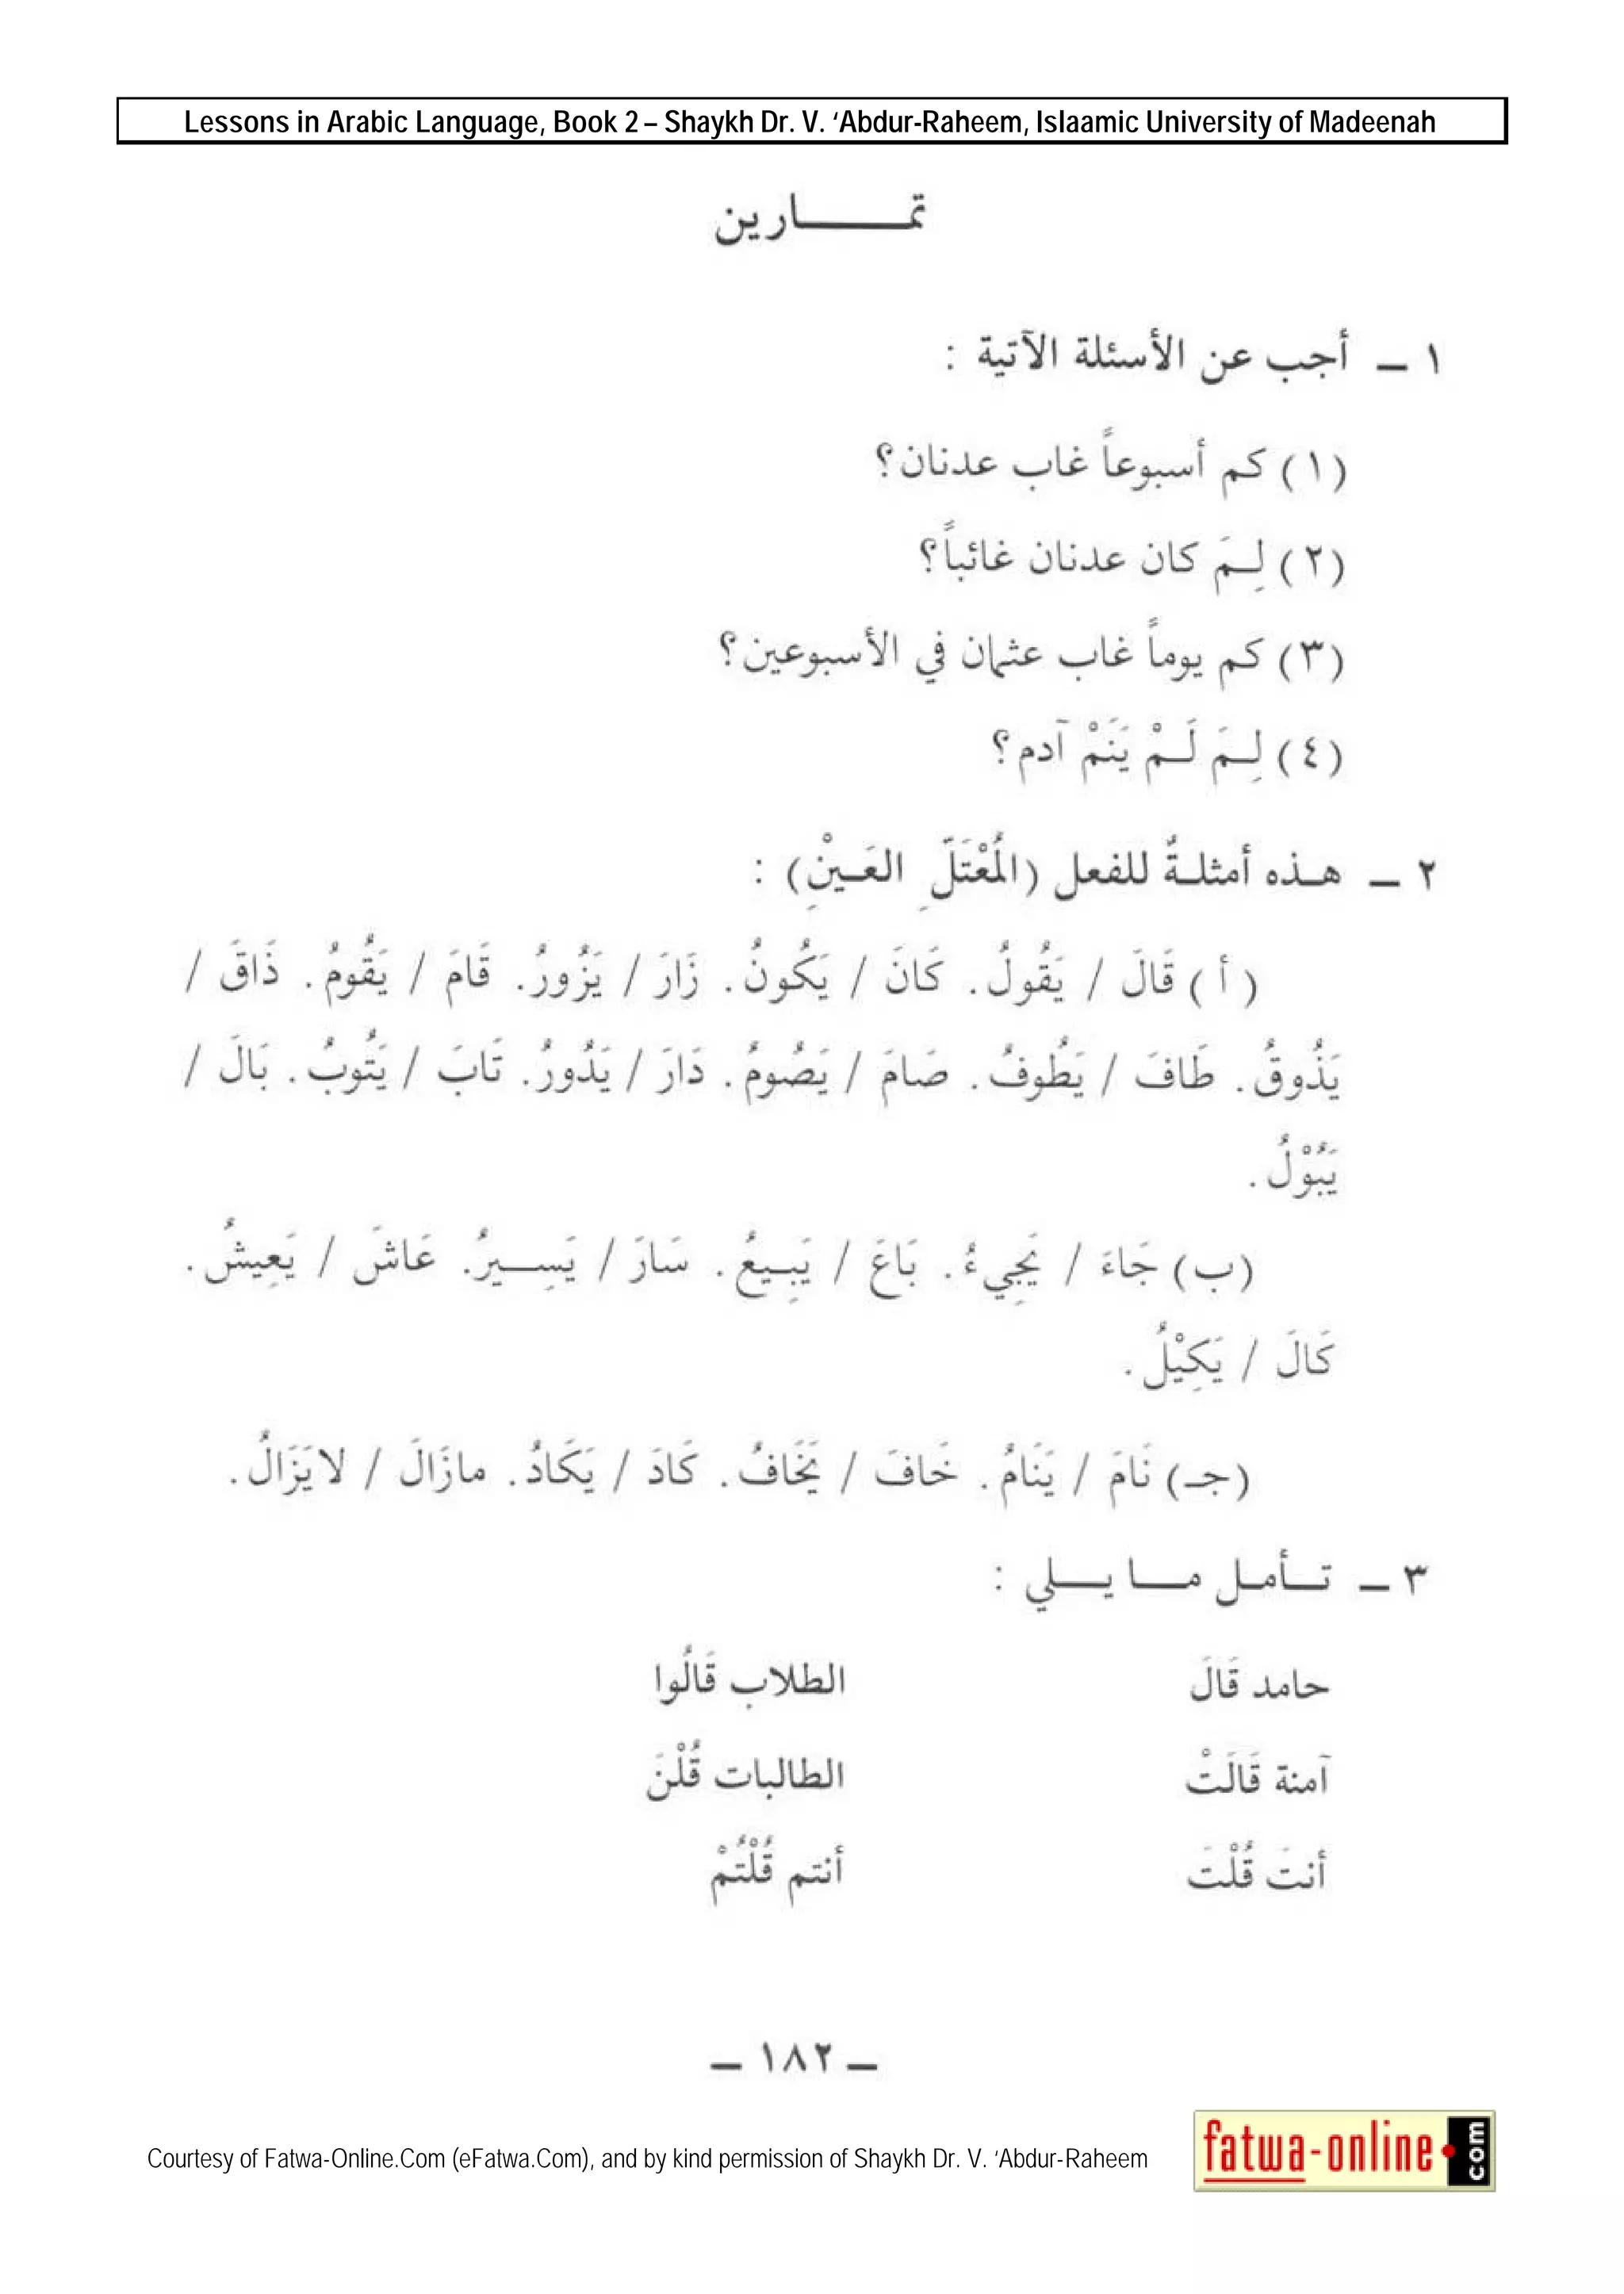 Lessons in Arabic Language, Book 2 – Shaykh Dr. V. ‘Abdur-Raheem, Islaamic University of Madeenah
تمـــــــارين
١ ــ أجب عن الأسئلة الآتية :
(١) كم أسبوعاً غاب عدنان؟
(٢) لِـمَ كان عدنان غائباً؟
(٣) كم يوماً غاب عثمان في الأسبوعين؟
(٤) لِـمَ لَـمْ يَنَمْ آدم؟
٢ ــ هـذه أمثلـةٌ للفعل (المُعْتَلِّ العَـيْنِ) :
(أ) قَالَ / يَقُولُ. كَانَ / يَكُونُ. زَارَ / يَزُورُ. قَامَ / يَقُومُ. ذَاقَ /
يَذُوقُ. طَافَ / يَطُوفُ. صَامَ / يَصُومُ. دَارَ / يَدُورُ. تَابَ / يَتُوبُ. بَالَ /
يَبُوْلُ.
(ب) جَاءَ / يَجِيءُ. بَاعَ / يَبِـيعُ. سَارَ / يَسِــيرُ. عَاشَ / يَعِيشُ.
كَالَ / يَكِيْلُ.
(جـ) نَامَ / يَنَامُ. خَافَ / يَخَافُ. كَادَ / يَكَادُ. مازَالَ / لايَزَالُ.
٣ ــ تــأمـل مــا يــلي :
حامد قَالَ الطلاب قَالُوا
آمنة قَالَتْ الطالبات قُلْنَ
أنتَ قُلْتَ أنتم قُلْتُمْ
ــ ١٨٢ ــ
Courtesy of Fatwa-Online.Com (eFatwa.Com), and by kind permission of Shaykh Dr. V. ‘Abdur-Raheem
fatwa-online.com